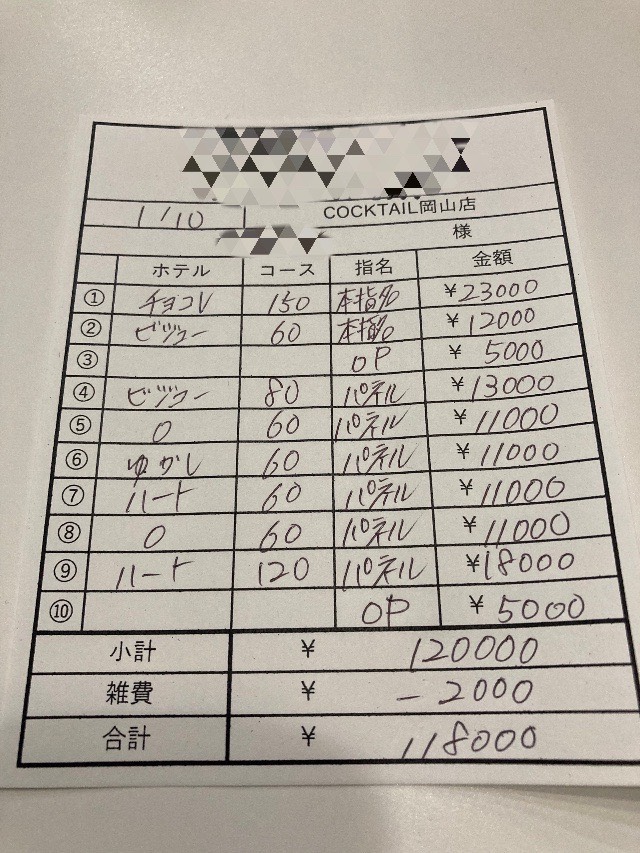 1/10 COCKTAIL岡山店
様
ホテル コース 指名 金額
① チョコレ 150 本指名 ¥23000
② ビジュー 60 本指名 ¥12000
③ OP ¥ 5000
④ ビジュー 80 パネル ¥13000
⑤ 0 60 パネル ¥11000
⑥ ゆかし 60 パネル ¥11000
⑦ ハート 60 パネル ¥11000
⑧ 0 60 パネル ¥11000
⑨ ハート 120 パネル ¥18000
⑩ OP ¥ 5000
小計 ¥ 120000
雑費 ¥ -2000
合計 ¥ 118000